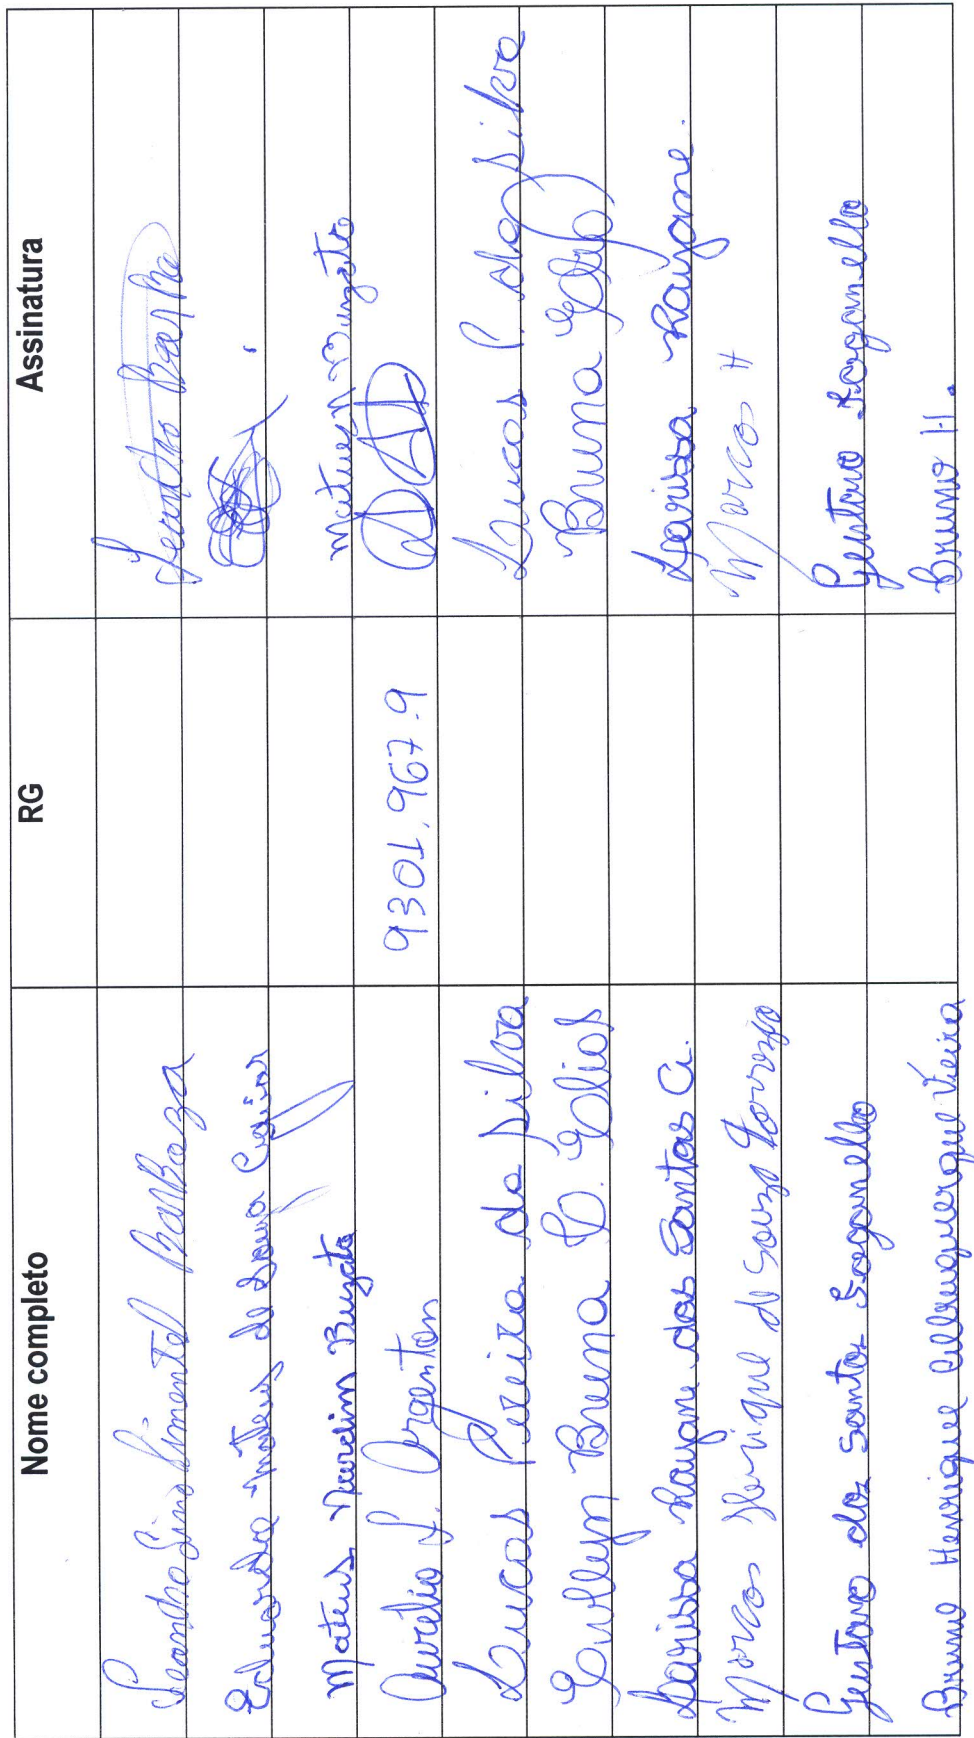 Nome completo RG Assinatura
Leandro Lino Pimentel Barboza Leandro Barboza
Eduardo Mateus de Souza
Mateus Nardim Buzato Mateus N Buzato
Aurélio L. Argenton 9301.967.9
Lucas Pereira da Silva Lucas P. da Silva
Evellyn Bruna C. Elias Bruna Elias
Larissa Rayane dos Santos A. Larissa Rayane.
Marcos Henrique de Souza Lorenzo Marcos H
Gustavo dos Santos Soganello Gustavo Soganello
Bruno Henrique Albuquerque Vieira Bruno H.